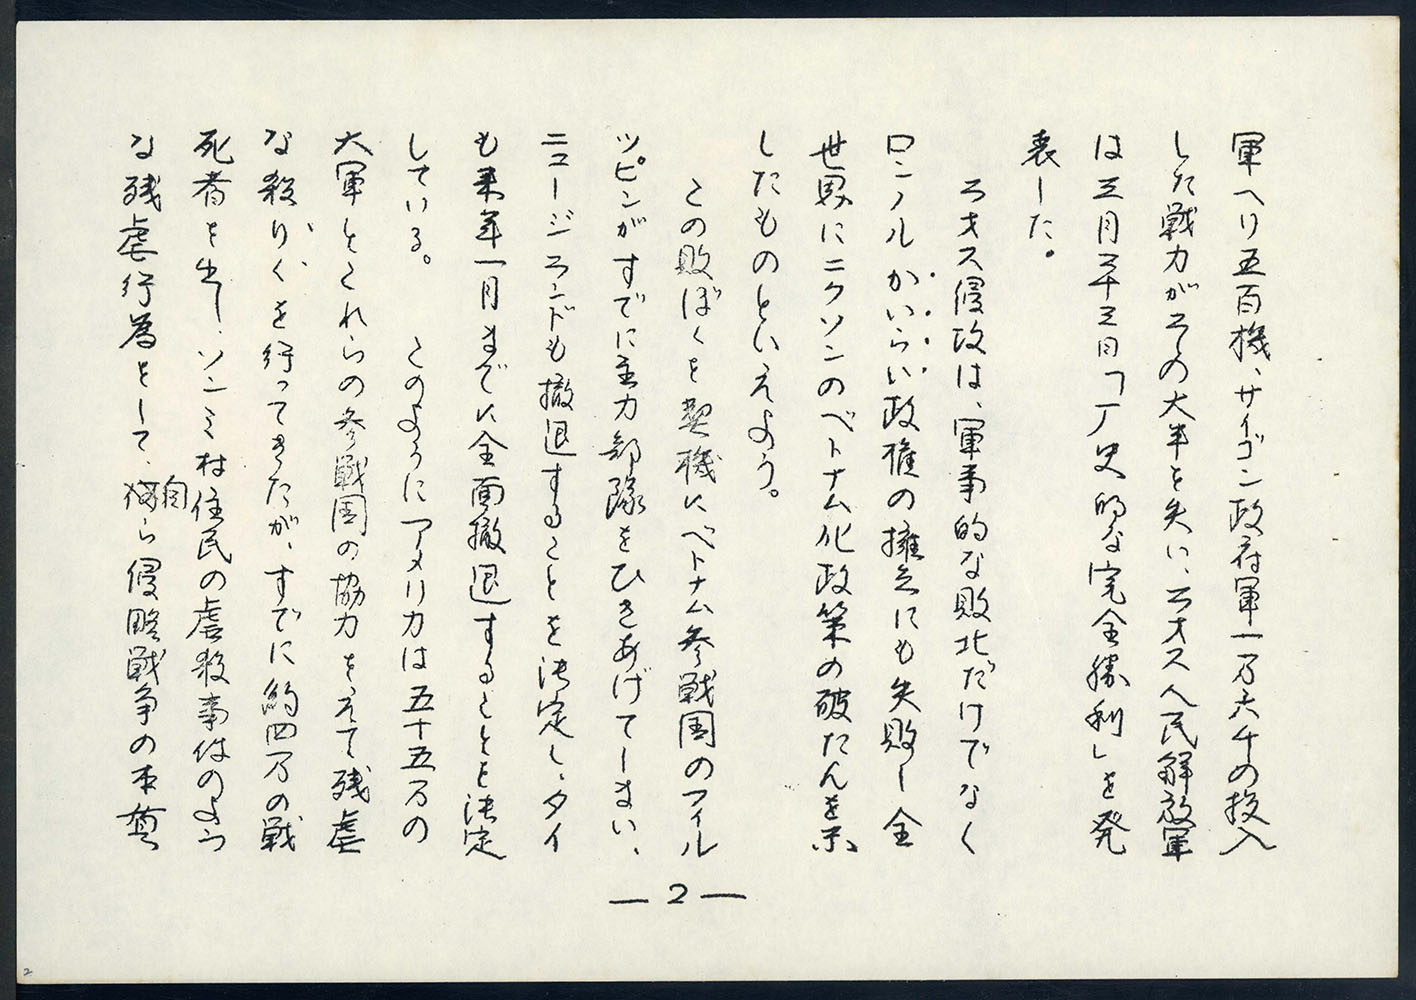 軍ヘリ五百機、サイゴン政府軍一万六千の投入
した戦力がその大半を失い、ラオス人民解放軍
は三月二十三日「厂史的な完全勝利」を発
表した。
ラオス侵攻は、軍事的な敗北だけでなく
ロンノルかいらい政権の擁立にも失敗し全
世界にニクソンのベトナム化政策の破たんを示
したものといえよう。
この敗ぼくを契機にベトナム参戦国のフィル
ッピンがすでに主力部隊をひきあげてしまい、
ニュージランドも撤退することを決定し、タイ
も来年一月までに全面撤退することを決定
している。　このようにアメリカは五十五万の
大軍とこれらの参戦国の協力をえて残虐
な殺りくを行ってきたが、すでに約四万の戦
死者を出し、ソンミ村住民の虐殺事件のよう
な残虐行為をして、自ら侵略戦争の本質
—2—
2